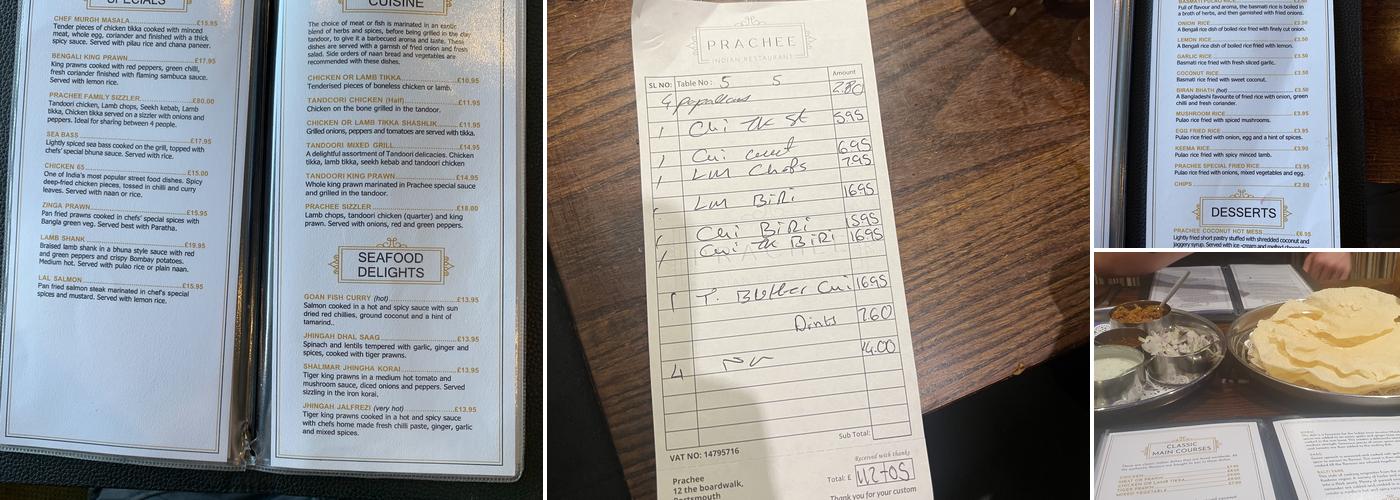 SPECIALS
CHEF MURGH MASALA £15.95
Tender pieces of chicken tikka cooked with minced
meat, whole egg, coriander and finished with a thick
spicy sauce. Served with pilau rice and chana paneer.
BENGALI KING PRAWN £17.95
King prawns cooked with red peppers, green chilli,
fresh coriander finished with flaming sambuca sauce.
Served with lemon rice.
PRACHEE FAMILY SIZZLER £80.00
Tandoori chicken, Lamb chops, Seekh kebab, Lamb
tikka, Chicken tikka served on a sizzler with onions and
peppers. Ideal for sharing between 4 people.
SEA BASS £17.95
Lightly spiced sea bass cooked on the grill, topped with
chefs' special bhuna sauce. Served with rice.
CHICKEN 65 £15.00
One of India's most popular street food dishes. Spicy
deep-fried chicken pieces, tossed in chilli and curry
leaves. Served with naan or rice.
ZINGA PRAWN £15.95
Pan fried prawns cooked in chefs' special spices with
Bangla green veg. Served best with Paratha.
LAMB SHANK £19.95
Braised lamb shank in a bhuna style sauce with red
and green peppers and crispy Bombay potatoes.
Medium hot. Served with pulao rice or plain naan.
LAL SALMON £15.95
Pan fried salmon steak marinated in chef's special
spices and mustard. Served with lemon rice.
CUISINE
The choice of meat or fish is marinated in an exotic
blend of herbs and spices, before being grilled in the clay
tandoor, to give it a barbecued aroma and taste. These
dishes are served with a garnish of fried onion and fresh
salad. Side orders of naan bread and vegetables are
recommended with these dishes.
CHICKEN OR LAMB TIKKA £10.95
Tenderised pieces of boneless chicken or lamb.
TANDOORI CHICKEN (Half) £11.95
Chicken on the bone grilled in the tandoor.
CHICKEN OR LAMB TIKKA SHASHLIK £11.95
Grilled onions, peppers and tomatoes are served with tikka.
TANDOORI MIXED GRILL £14.95
A delightful assortment of Tandoori delicacies. Chicken
tikka, lamb tikka, seekh kebab and tandoori chicken
TANDOORI KING PRAWN £14.95
Whole king prawn marinated in Prachee special sauce
and grilled in the tandoor.
PRACHEE SIZZLER £18.00
Lamb chops, tandoori chicken (quarter) and king
prawn. Served with onions, red and green peppers.
SEAFOOD
DELIGHTS
GOAN FISH CURRY (hot) £13.95
Salmon cooked in a hot and spicy sauce with sun
dried red chillies, ground coconut and a hint of
tamarind..
JHINGAH DHAL SAAG £13.95
Spinach and lentils tempered with garlic, ginger and
spices, cooked with tiger prawns.
SHALIMAR JHINGHA KORAI £13.95
Tiger king prawns in a medium hot tomato and
mushroom sauce, diced onions and peppers. Served
sizzling in the iron korai.
JHINGAH JALFREZI (very hot) £13.95
Tiger king prawns cooked in a hot and spicy sauce
with chefs home made fresh chilli paste, ginger, garlic
and mixed spices.
PRACHEE
INDIAN RESTAURANT
SL NO: Table No: 5 5 Amount
4 2.80
1 Chi Tk St 595
1 Chi 695
1 Lm Chops 795
Lm BiRi 1695
1 Chi BiRi 1595
1 Chi Tk BiRi 1695
1 Chi 1695
Drinks 7.60
4 14.00
Sub Total:
VAT NO: 14795716
Received with thanks
Prachee
12 the boardwalk,
Portsmouth
Total: £
Thank you for your custom
BASMATI PULAO RICE
Full of flavour and aroma, the basmati rice is boiled in
a broth of herbs, and then garnished with fried onions.
ONION RICE £3.50
A Bengali rice dish of boiled rice fried with finely cut onion.
LEMON RICE £3.50
A Bengali rice dish of boiled rice fried with lemon.
GARLIC RICE £3.50
Basmati rice fried with fresh sliced garlic.
COCONUT RICE £3.50
Basmati rice fried with sweet coconut.
BIRAN BHATH (hot) £3.50
A Bangladeshi favourite of fried rice with onion, green
chilli and fresh coriander.
MUSHROOM RICE £3.95
Pulao rice fried with spiced mushrooms.
EGG FRIED RICE £3.95
Pulao rice fried with onion, egg and a hint of spices.
KEEMA RICE £3.90
Pulao rice fried with spicy minced lamb.
PRACHEE SPECIAL FRIED RICE £3.95
Pulao rice fried with onions, mixed vegetables and egg.
CHIPS £2.80
DESSERTS
PRACHEE COCONUT HOT MESS £6.95
Lightly fried short pastry stuffed with shredded coconut and
jaggery syrup. Served with ice-cream and melted chocolate
CLASSIC
MAIN COURSES